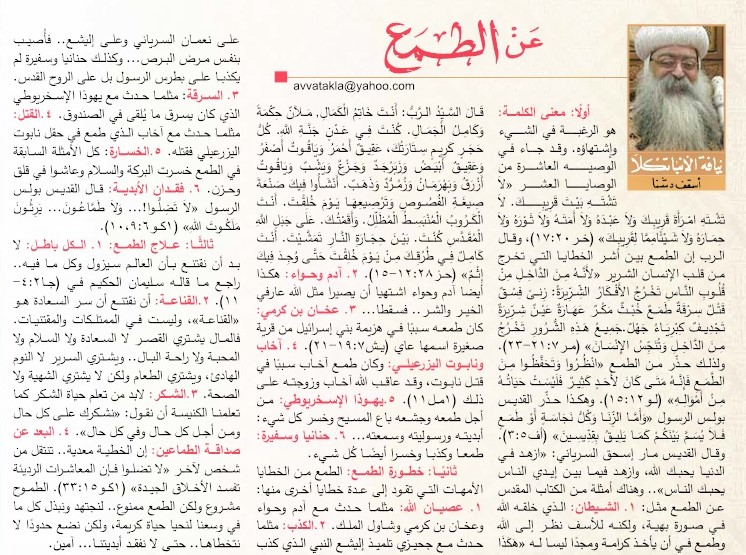 عَنْ الطمَع
avvatakla@yahoo.com
نيافة الأنبا تكلا
أسقف دشنا
أولًا: معنى الكلمة:
هو الرغبة في الشيء
واشتهاؤه. وقد جاء في
الوصية العاشرة من
الوصايا العشر «لَا
تَشْتَهِ بَيْتَ قَرِيبِكَ. لَا
تَشْتَهِ امْرَأَةَ قَرِيبِكَ وَلَا عَبْدَهُ وَلَا أَمَتَهُ وَلَا ثَوْرَهُ وَلَا
حِمَارَهُ وَلَا شَيْئًا مِمَّا لِقَرِيبِكَ» (خر ١٧:٢٠)، وقال
الرب إن الطمع بين أشر الخطايا التي تخرج
من قلب الإنسان الشرير «لأَنَّهُ مِنَ الدَّاخِلِ مِنْ
قُلُوبِ النَّاسِ تَخْرُجُ الأَفْكَارُ الشِّرِّيرَةُ: زِنىً فِسْقٌ
قَتْلٌ سِرْقَةٌ طَمَعٌ خُبْثٌ مَكْرٌ عَهَارَةٌ عَيْنٌ شِرِّيرَةٌ
تَجْدِيفٌ كِبْرِيَاءُ جَهْلٌ. جَمِيعُ هَذِهِ الشُّرُورِ تَخْرُجُ
مِنَ الدَّاخِلِ وَتُنَجِّسُ الإِنْسَانَ» (مر٧: ٢١-٢٣)،
ولذلك حذّر من الطمع «انْظُرُوا وَتَحَفَّظُوا مِنَ
الطَّمَعِ فَإِنَّهُ مَتَى كَانَ لأَحَدٍ كَثِيرٌ فَلَيْسَتْ حَيَاتُهُ
مِنْ أَمْوَالِهِ» (لو١٥:١٢). وهكذا حذّر القديس
بولس الرسول «وَأَمَّا الزِّنَا وَكُلُّ نَجَاسَةٍ أَوْ طَمَعٍ
فَلَا يُسَمَّ بَيْنَكُمْ كَمَا يَلِيقُ بِقِدِّيسِينَ» (أف٣:٥).
وقال القديس مار إسحق السرياني: «ازهد في
الدنيا يحبك الله، وازهد فيما بين إيدي الناس
يحبك الناس».. وهناك أمثلة من الكتاب المقدس
عن الطمع مثل: ١. الشيطان: الذي خلقه الله
في صورة بهية، ولكنه للأسف نظر إلى الله
وطمع في أن يأخذ كرامة ومجدًا ليسا له «هكَذَا
قَالَ السَّيِّدُ الرَّبُّ: أَنْتَ خَاتِمُ الْكَمَالِ، مَلآنٌ حِكْمَةً
وَكَامِلُ الْجَمَالِ. كُنْتَ فِي عَدْنٍ جَنَّةِ اللهِ. كُلُّ
حَجَرٍ كَرِيمٍ سِتَارَتُكَ، عَقِيقٌ أَحْمَرُ وَيَاقُوتٌ أَصْفَرُ
وَعَقِيقٌ أَبْيَضُ وَزَبَرْجَدٌ وَجَزْعٌ وَيَشْبٌ وَيَاقُوتٌ
أَزْرَقُ وَبَهْرَمَانُ وَزُمُرُّدٌ وَذَهَبٌ. أَنْشَأُوا فِيكَ صَنْعَةَ
صِيغَةِ الفُصُوصِ وَتَرْصِيعِهَا يَوْمَ خُلِقْتَ. أَنْتَ
الْكَرُوبُ الْمُنْبَسِطُ الْمُظَلِّلُ. وَأَقَمْتُكَ. عَلَى جَبَلِ اللهِ
الْمُقَدَّسِ كُنْتَ. بَيْنَ حِجَارَةِ النَّارِ تَمَشَّيْتَ. أَنْتَ
كَامِلٌ فِي طُرُقِكَ مِنْ يَوْمَ خُلِقْتَ حَتَّى وُجِدَ فِيكَ
إِثْمٌ» (حز ٢٨: ١٢-١٥). ٢. آدم وحواء: هكذا
أيضا آدم وحواء اشتهيا أن يصيرا مثل الله عارفي
الخير والشر.. فسقطا... ٣. عخان بن كرمي:
كان طمعه سببًا في هزيمة بني إسرائيل من قرية
صغيرة اسمها عاي (يش٧: ١٩-٢١). ٤. أخاب
ونابوت اليزرعيلي: وكان طمع أخاب سببًا في
قتل نابوت، وقد عاقب الله أخاب وزوجته على
ذلك (١مل٢١). ٥.يهوذا الإسخريوطي: من
أجل طمعه وجشعه باع المسيح وخسر كل شيء:
أبديته ورسوليته وسمعته... ٦. حنانيا وسفيرة:
طمعا وكذبا وخسرا أيضًا كُل شيء.
ثانيًا: خطورة الطمع: الطمع من الخطايا
الأمهات التي تقود إلى عدة خطايا أخرى منها:
١. عصيان الله: مثلما حدث مع آدم وحواء
وعخان بن كرمي وشاول الملك. ٢.الكذب: مثلما
حدث مع جحيزي تلميذ إليشع النبي الذي كذب
على نعمان السرياني وعلى إليشع.. فأُصيب
بنفس مرض البرص... وكذلك حنانيا وسفيرة لم
يكذبا على بطرس الرسول بل على الروح القدس.
٣. السرقة: مثلما حدث مع يهوذا الإسخريوطي
الذي كان يسرق ما يُلقى في الصندوق. ٤.القتل:
مثلما حدث مع آخاب الذي طمع في حقل نابوت
اليزرعيلي فقتله. ٥.الخسارة: كل الأمثلة السابقة
في الطمع خسرت البركة والسلام وعاشوا في قلق
وحزن. ٦. فقدان الأبدية: قال القديس بولس
الرسول «لَا تَضِلُّوا!... وَلَا طَمَّاعُونَ... يَرِثُونَ
مَلَكُوتَ اللهِ» (١كو٦: ٩، ١٠).
ثالثًا: علاج الطمع: ١. الكل باطل: لا
بد أن نقتنع بأن العالم سيزول وكل ما فيه..
راجع ما قاله سليمان الحكيم في (جا٢: ٤-
١١). ٢.القناعة: أن نقتنع أن سر السعادة هو
«القناعة»، وليست في الممتلكات والمقتنيات.
فالمال يشتري القصر لا السعادة ولا السلام ولا
المحبة ولا راحة البال.. ويشتري السرير لا النوم
الهادئ، ويشتري الطعام ولكن لا يشتري الشهية ولا
الصحة. ٣.الشكر: لابد من تعلم حياة الشكر كما
تعلمنا الكنيسة أن نقول: «نشكرك على كل حال
ومن أجل كل حال وفي كل حال». ٤. البعد عن
صداقة الطماعين: إن الخطية معدية.. تنتقل من
شخص لآخر «لا تضلوا فإن المعاشرات الرديئة
تفسد الأخلاق الجيدة» (١كو١٥: ٣٣). الطموح
مشروع ولكن الطمع ممنوع.. لنجتهد ونبذل كل ما
في وسعنا لنحيا حياة كريمة، ولكن نضع حدودًا لا
نتخطاها.. حتى لا نفقد أبديتنا... آمين.